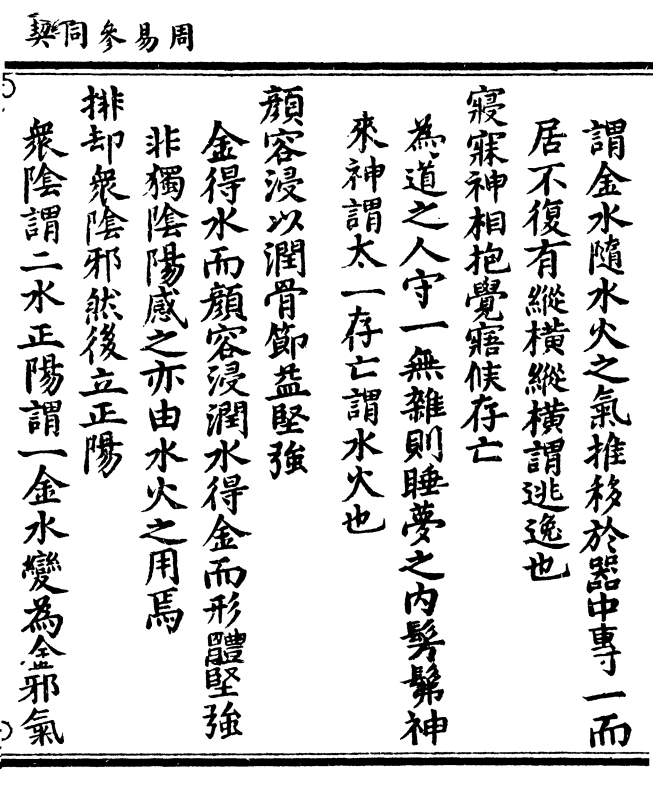 周易參同契
謂金水隨水火之氣推移於器中專一而
居不復有縱橫縱橫謂逃逸也
寢寐神相抱覺寤候存亡
為道之人守一無雜則睡夢之內髣髴神
來神謂太一存亡謂水火也
顔容浸以潤骨節益堅強
金得水而顔容浸潤水得金而形體堅強
非獨陰陽感之亦由水火之用焉
排却衆陰邪然後立正陽
衆陰謂二水正陽謂一金水變為金邪氣